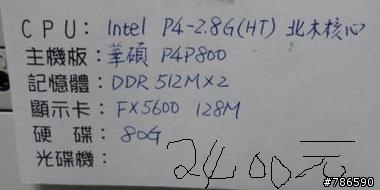 CPU: Intel P4-2.8G(HT) 北木核心
主機版: 華碩 P4P800
記憶體: DDR 512M×2
顯示卡: FX5600 128M
硬碟: 80G
光碟機:
2400元
#786590